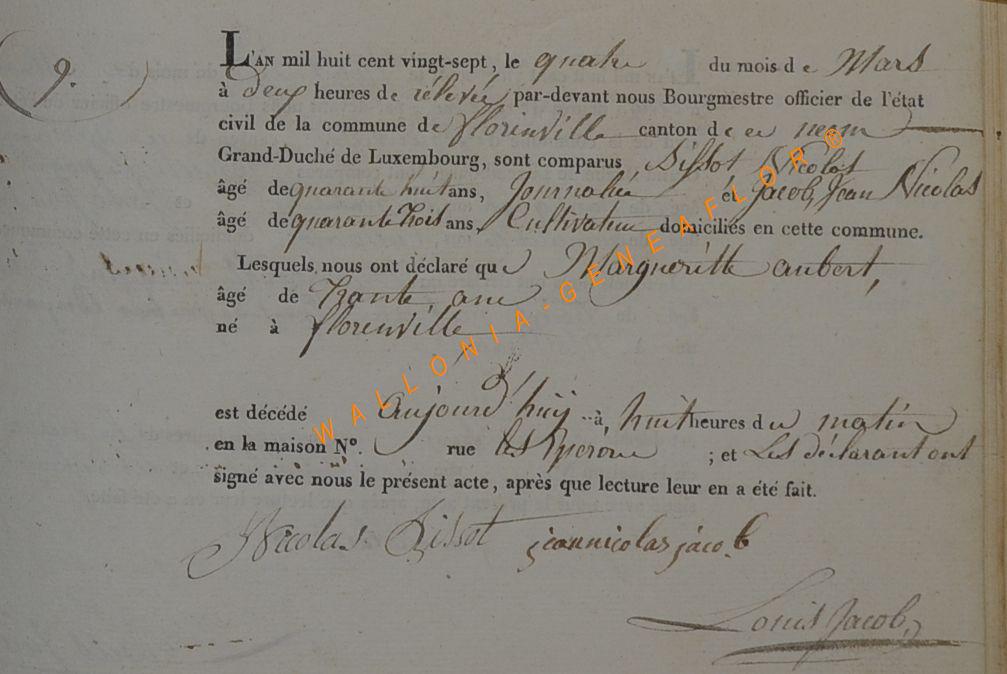 9.
L'AN mil huit cent vingt-sept, le quatre du mois de Mars
à deux heures de rélevée par-devant nous Bourgmestre officier de l'état
civil de la commune de florenville canton de ce nom
Grand-Duché de Luxembourg, sont comparus Dissot Nicolas
âgé de quarante huit ans, Journalier et Jacob, Jean Nicolas
âgé de quarante trois ans, Cultivateur domiciliés en cette commune.
Lesquels nous ont déclaré que Margueritte aubert,
âgé de trente ans
né à florenville
est décédé aujourd'huy à huit heures du matin
en la maison N°. rue les ; et Les déclarant ont
signé avec nous le présent acte, après que lecture leur en a été fait.
Nicolas Dissot jeannicolas jacob
Louis Jacob
WALLONIA-GENEAFLOR®